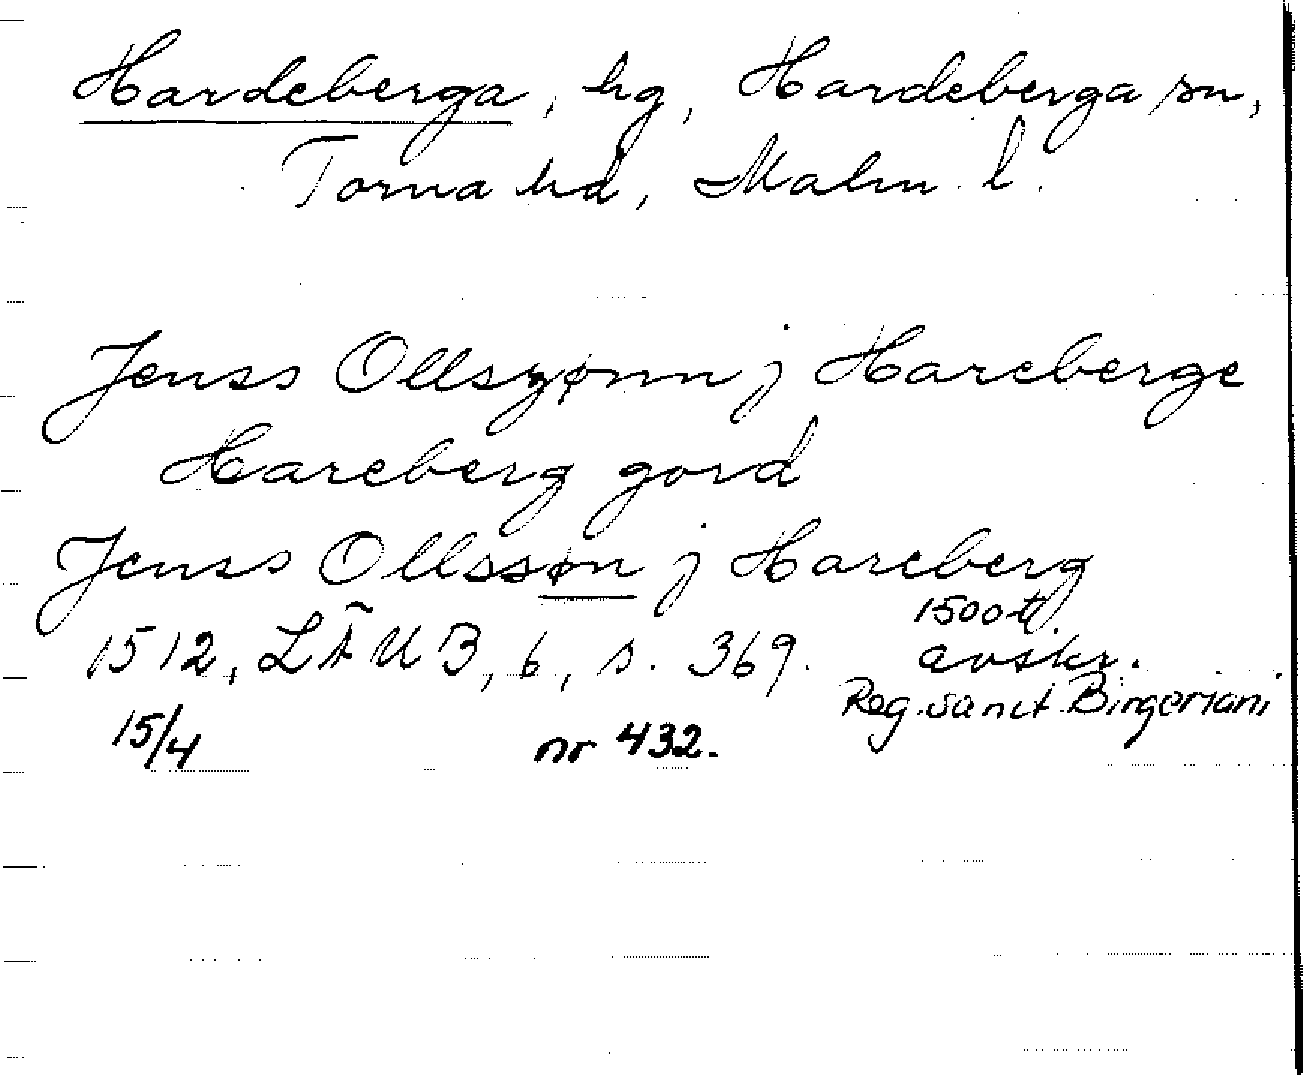 Hardeberga, hg, Hardeberga sn,
Torna hd, Malm. l.
Jenss Ollszønn j Hareberge
Hareberg gord
Jenss Ollssøn j Hareberg
1512, LÄUB, 6, s. 369. 1500-t. avskr.
Reg. Sanct Birgeriani
15/4 nr 432.